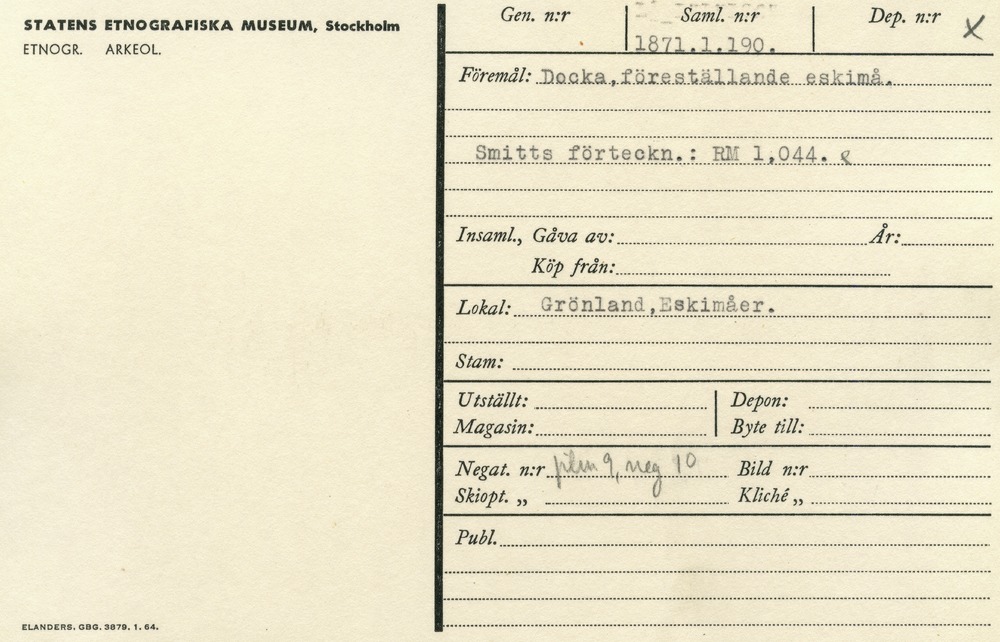 STATENS ETNOGRAFISKA MUSEUM, Stockholm
ETNOGR. ARKEOL.
Gen. n:r Saml. n:r Dep. n:r x
1871.1.190.
Föremål: Docka,föreställande eskimå.
Smitts förteckn.: RM 1,044.
Insaml., Gåva av: År:
Köp från:
Lokal: Grönland,Eskimåer.
Stam:
Utställt: Depon:
Magasin: Byte till:
Negat. n:r film 9, neg 10 Bild n:r
Skiopt. „ Kliché „
Publ.
ELANDERS. GBG. 3879. 1. 64.